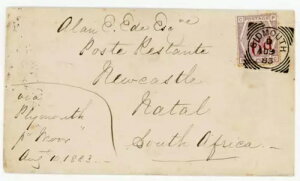 Alan E. Ede Esqre
Poste Restante
Newcastle
Natal
South Africa.
via
Plymouth
pr "Moor"
Aug 10. 1883.
SIDMOUTH
83